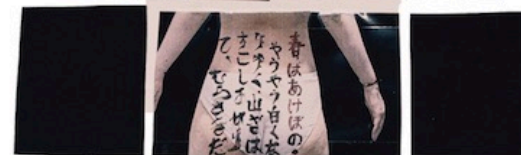 春はあけぼの。
やうやう白く
なりゆく、山ぎは
すこしあ
て、むらさきだ